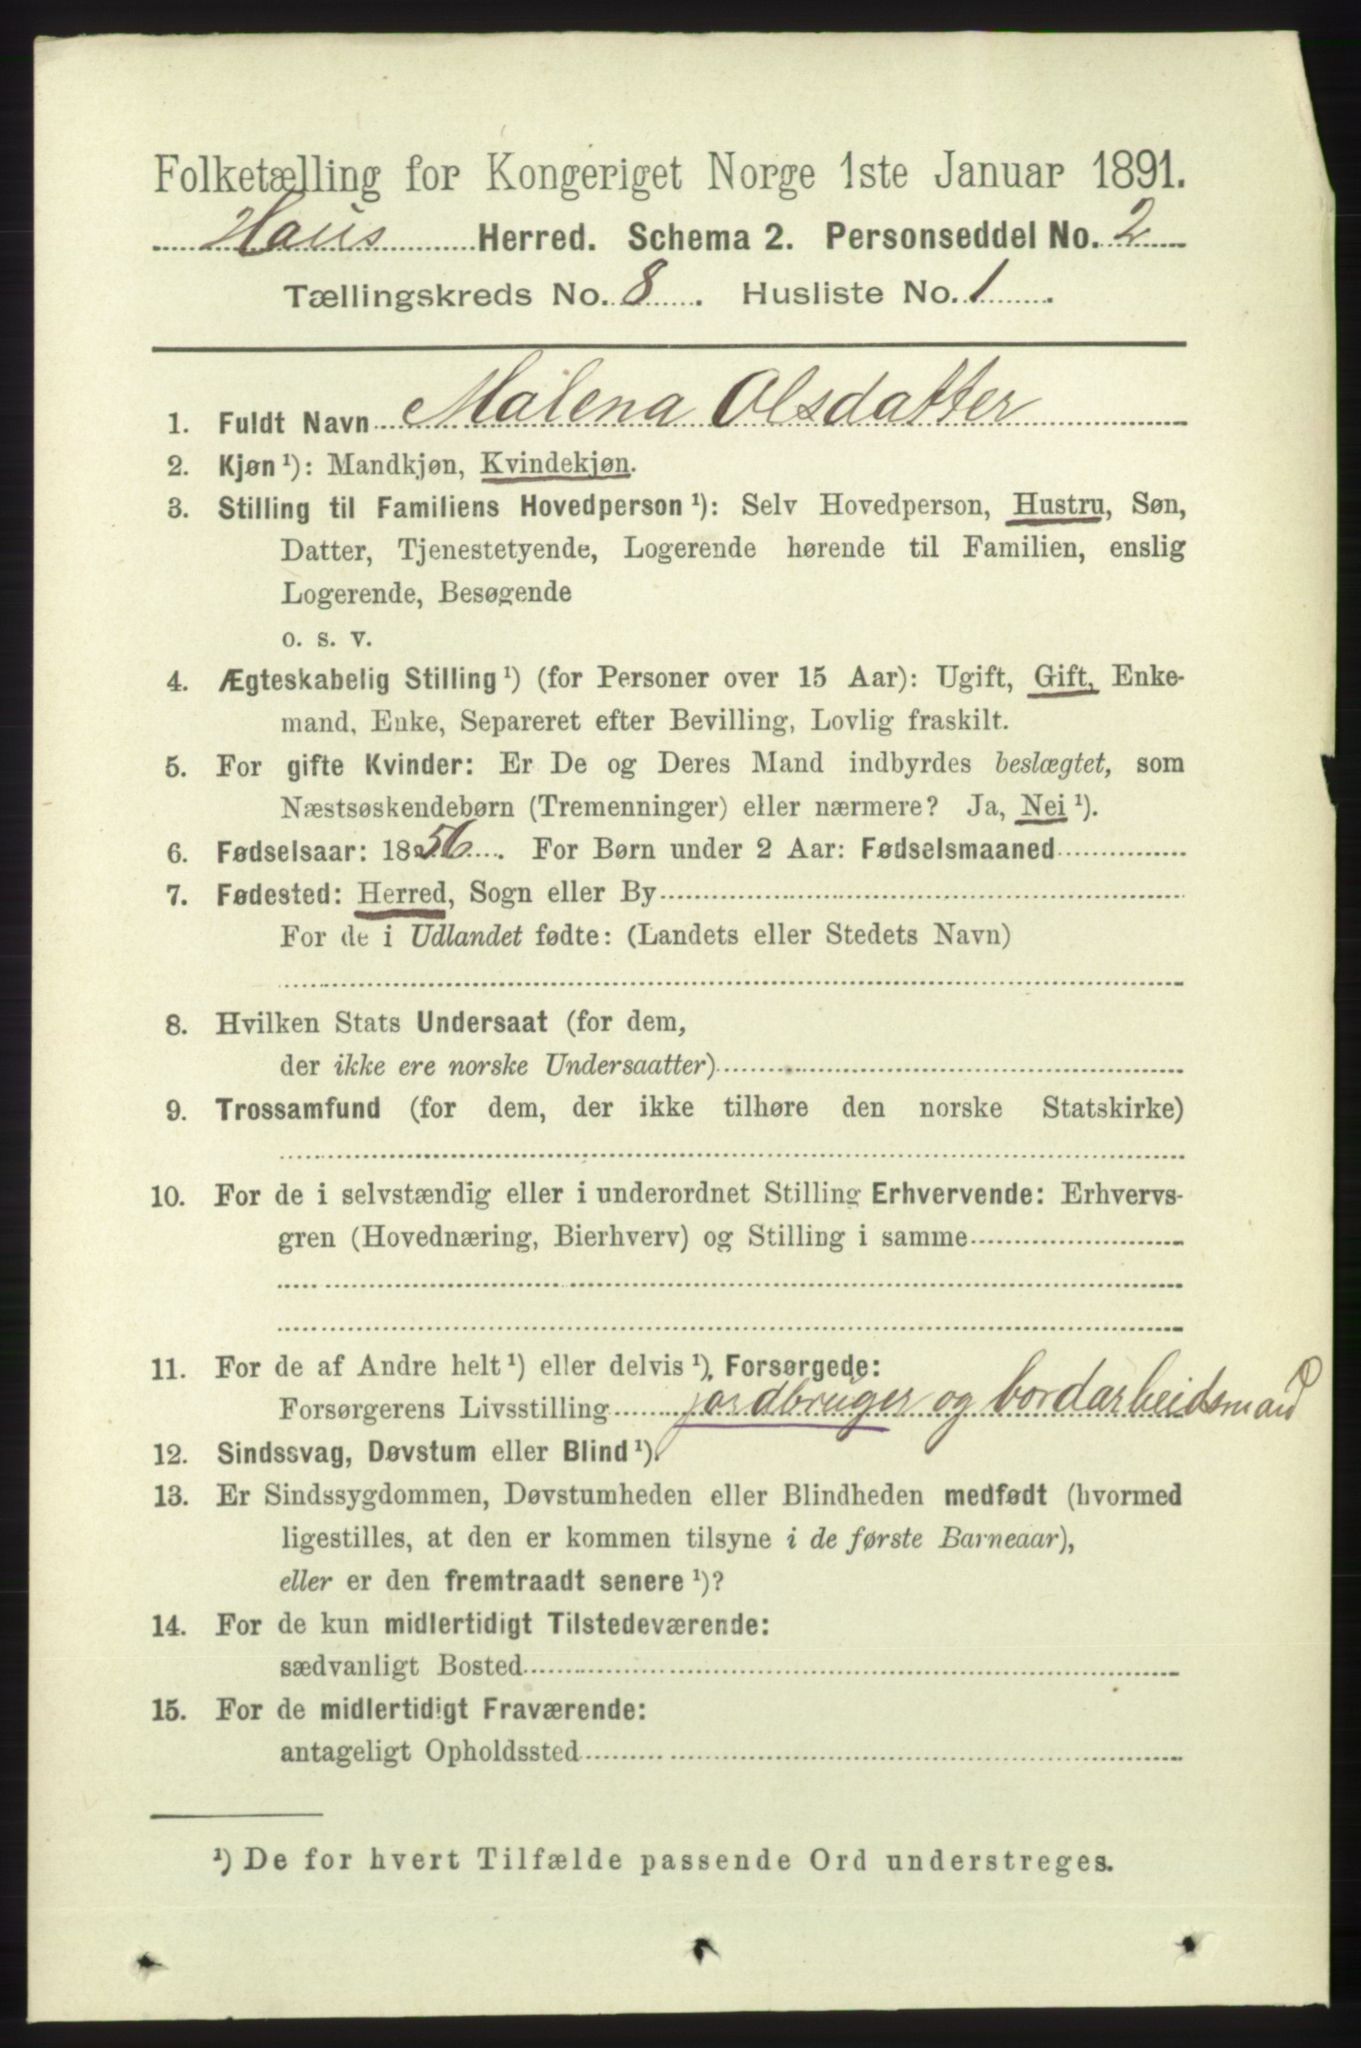 Folketælling for Kongeriget Norge 1ste Januar 1891.
Haus Herred. Schema 2. Personseddel No. 2
Tællingskreds No. 8. Husliste No. 1.
1. Fuldt Navn Malena Olsdatter
2. Kjøn¹): Mandkjøn, Kvindekjøn.
3. Stilling til Familiens Hovedperson¹): Selv Hovedperson, Hustru, Søn,
Datter, Tjenestetyende, Logerende hørende til Familien, enslig
Logerende, Besøgende
o. s. v.
4. Ægteskabelig Stilling¹) (for Personer over 15 Aar): Ugift, Gift, Enke-
mand, Enke, Separeret efter Bevilling, Lovlig fraskilt.
5. For gifte Kvinder: Er De og Deres Mand indbyrdes beslægtet, som
Næstsøskendebørn (Tremenninger) eller nærmere? Ja, Nei¹).
6. Fødselsaar: 1856. For Børn under 2 Aar: Fødselsmaaned
7. Fødested: Herred, Sogn eller By
For de i Udlandet fødte: (Landets eller Stedets Navn)
8. Hvilken Stats Undersaat (for dem,
der ikke ere norske Undersaatter)
9. Trossamfund (for dem, der ikke tilhøre den norske Statskirke)
10. For de i selvstændig eller i underordnet Stilling Erhvervende: Erhvervs-
gren (Hovednæring, Bierhverv) og Stilling i samme
11. For de af Andre helt¹) eller delvis¹), Forsørgede:
Forsørgerens Livsstilling jordbruger og bordarbeidsmand
12. Sindssvag, Døvstum eller Blind¹).
13. Er Sindssygdommen, Døvstumheden eller Blindheden medfødt (hvormed
ligestilles, at den er kommen tilsyne i de første Barneaar),
eller er den fremtraadt senere¹)?
14. For de kun midlertidigt Tilstedeværende:
sædvanligt Bosted
15. For de midlertidigt Fraværende:
antageligt Opholdssted
¹) De for hvert Tilfælde passende Ord understreges.